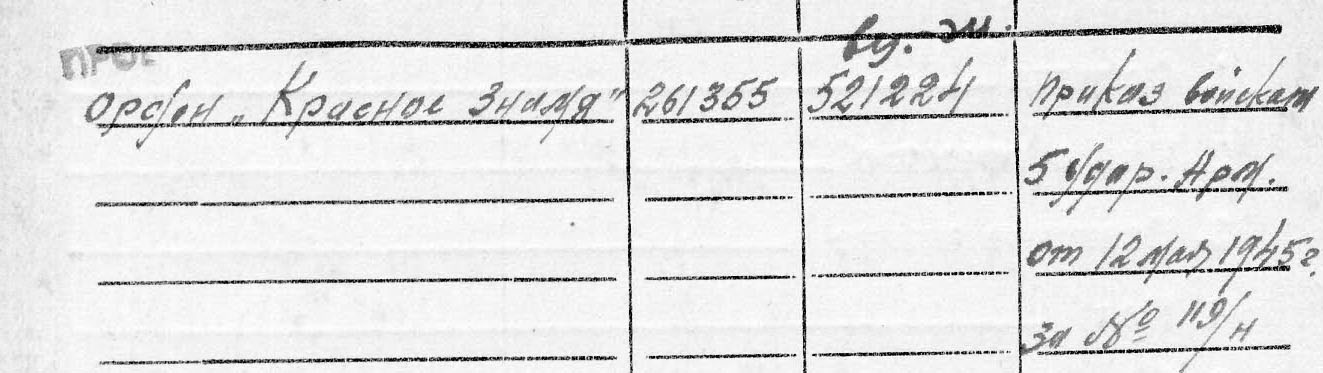 ву. ди.
орден „Красное Знамя" 261355 521224 Приказ войскам
5 удар. Арм.
от 12 мая 1945г.
за № 119/н